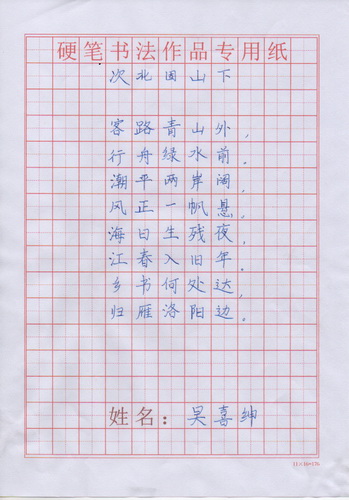 硬笔书法作品专用纸
次北固山下
客路青山外,
行舟绿水前.
潮平两岸阔,
风正一帆悬,
海日生残夜,
江春入旧年.
乡书何处达,
归雁洛阳边.
姓名: 吴喜绅